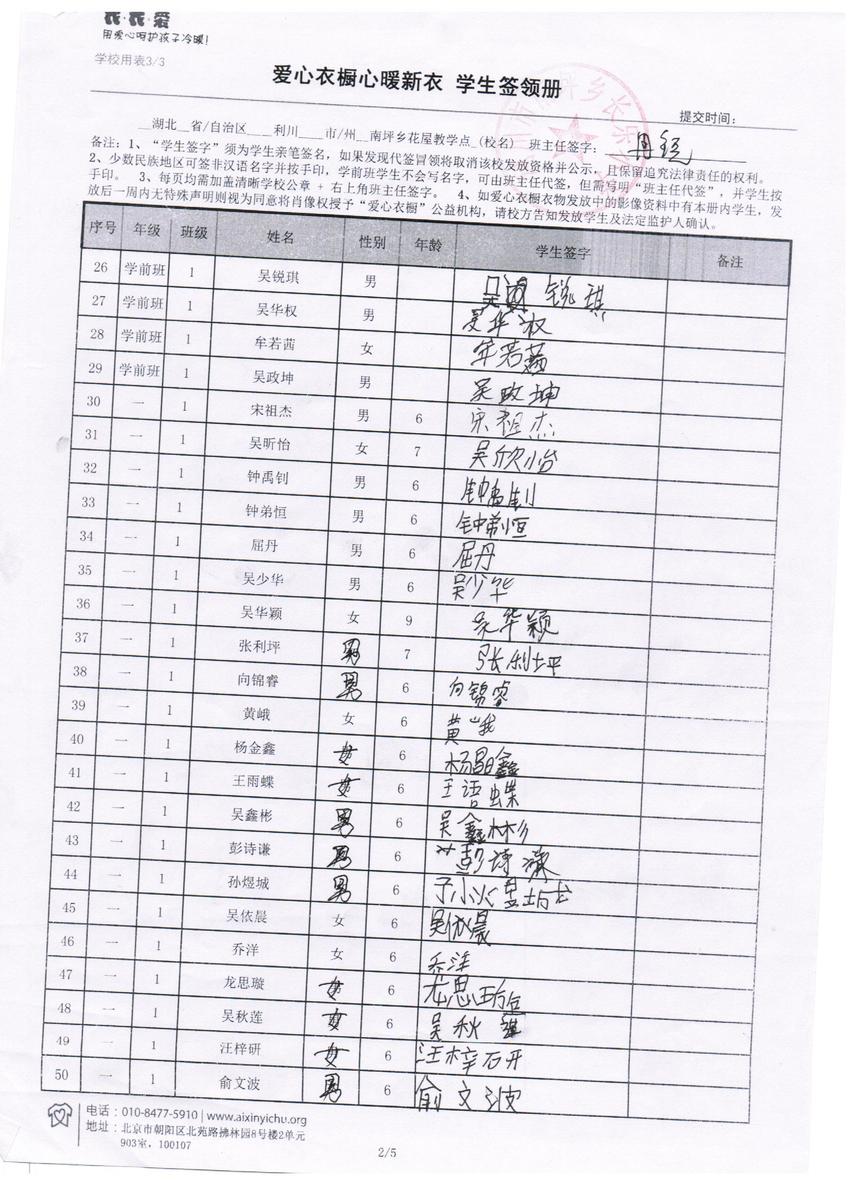 衣·衣·爱
用爱心呵护孩子冷暖!
学校用表3/3
爱心衣橱心暖新衣 学生签领册
提交时间:
__湖北__省/自治区____利川____市/州__南坪乡花屋教学点_(校名) 班主任签字:
备注:1、“学生签字”须为学生亲笔签名,如果发现代签冒领将取消该校发放资格并公示,且保留追究法律责任的权利。
2、少数民族地区可签非汉语名字并按手印,学前班学生不会写名字,可由班主任代签,但需写明“班主任代签”,并学生按
手印。 3、每页均需加盖清晰学校公章 + 右上角班主任签字。 4、如爱心衣橱衣物发放中的影像资料中有本册内学生,发
放后一周内无特殊声明则视为同意将肖像权授予“爱心衣橱”公益机构,请校方告知发放学生及法定监护人确认。
序号 年级 班级 姓名 性别 年龄 学生签字 备注
26 学前班 1 吴锐琪 男 吴锐琪
27 学前班 1 吴华权 男 吴华权
28 学前班 1 牟若茜 女 牟若茜
29 学前班 1 吴政坤 男 吴政坤
30 一 1 宋祖杰 男 6 宋祖杰
31 一 1 吴昕怡 女 7 吴欣怡
32 一 1 钟禹钊 男 6 钟禹钊
33 一 1 钟弟恒 男 6 钟弟恒
34 一 1 屈丹 男 6 屈丹
35 一 1 吴少华 男 6 吴少华
36 一 1 吴华颖 女 9 吴华颖
37 一 1 张利坪 男 7 张利坪
38 一 1 向锦睿 男 6 向锦睿
39 一 1 黄峨 女 6 黄峨
40 一 1 杨金鑫 女 6 杨鑫
41 一 1 王雨蝶 女 6 王语蝶
42 一 1 吴鑫彬 男 6 吴鑫彬
43 一 1 彭诗谦 男 6 彭诗
44 一 1 孙煜城 男 6 孙煜城
45 一 1 吴依晨 女 6 吴依晨
46 一 1 乔洋 女 6 乔洋
47 一 1 龙思璇 女 6 龙思
48 一 1 吴秋莲 女 6 吴秋
49 一 1 汪梓研 女 6 汪梓研
50 一 1 俞文波 男 6 俞文波
电话:010-8477-5910 | www.aixinyichu.org
地址:北京市朝阳区北苑路拂林园8号楼2单元
903室,100107
2/5